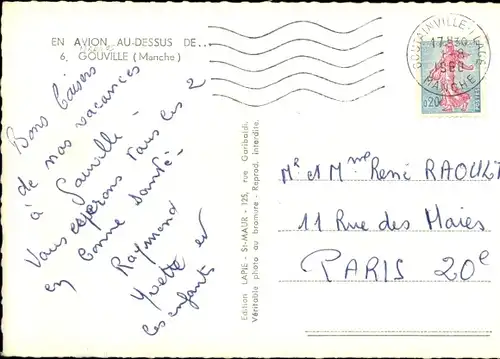 EN AVION AU-DESSUS DE...
6, GOUVILLE (Manche)
Bons baisers
de nos vacances
à Gouville -
Vous espérons tous les 2
en bonne santé -
Raymond
Yvette et
les enfants
Edition LAPIE - St-MAUR - 125, rue Garibaldi.
Véritable photo au bromure - Reprod. interdite.
17H30
MANCHE
0,20
Mr et Mme René RAOULT
11 Rue des Maies
PARIS 20e